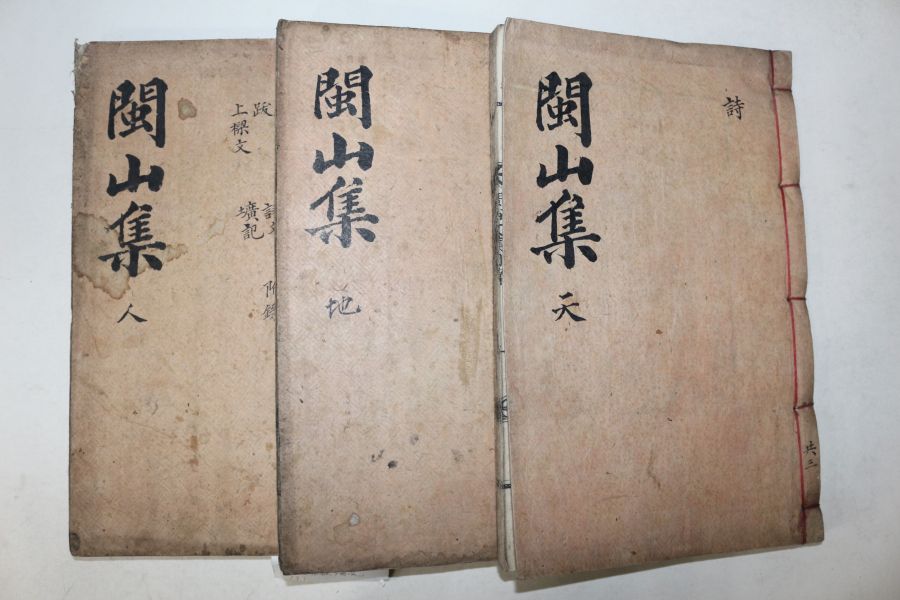 閩山集
天
詩
共三
閩山集
地
閩山集
人
跋
上樑文
壙記
附錄